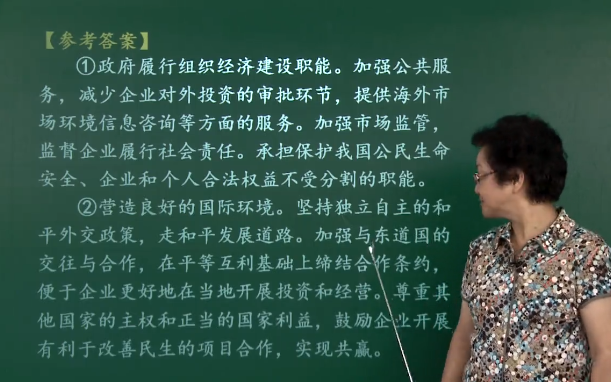 【参考答案】
①政府履行组织经济建设职能。加强公共服
务，减少企业对外投资的审批环节，提供海外市
场环境信息咨询等方面的服务。加强市场监管，
监督企业履行社会责任。承担保护我国公民生命
安全、企业和个人合法权益不受分割的职能。
②营造良好的国际环境。坚持独立自主的和
平外交政策，走和平发展道路。加强与东道国的
交往与合作，在平等互利基础上缔结合作条约，
便于企业更好地在当地开展投资和经营。尊重其
他国家的主权和正当的国家利益，鼓励企业开展
有利于改善民生的项目合作，实现共赢。